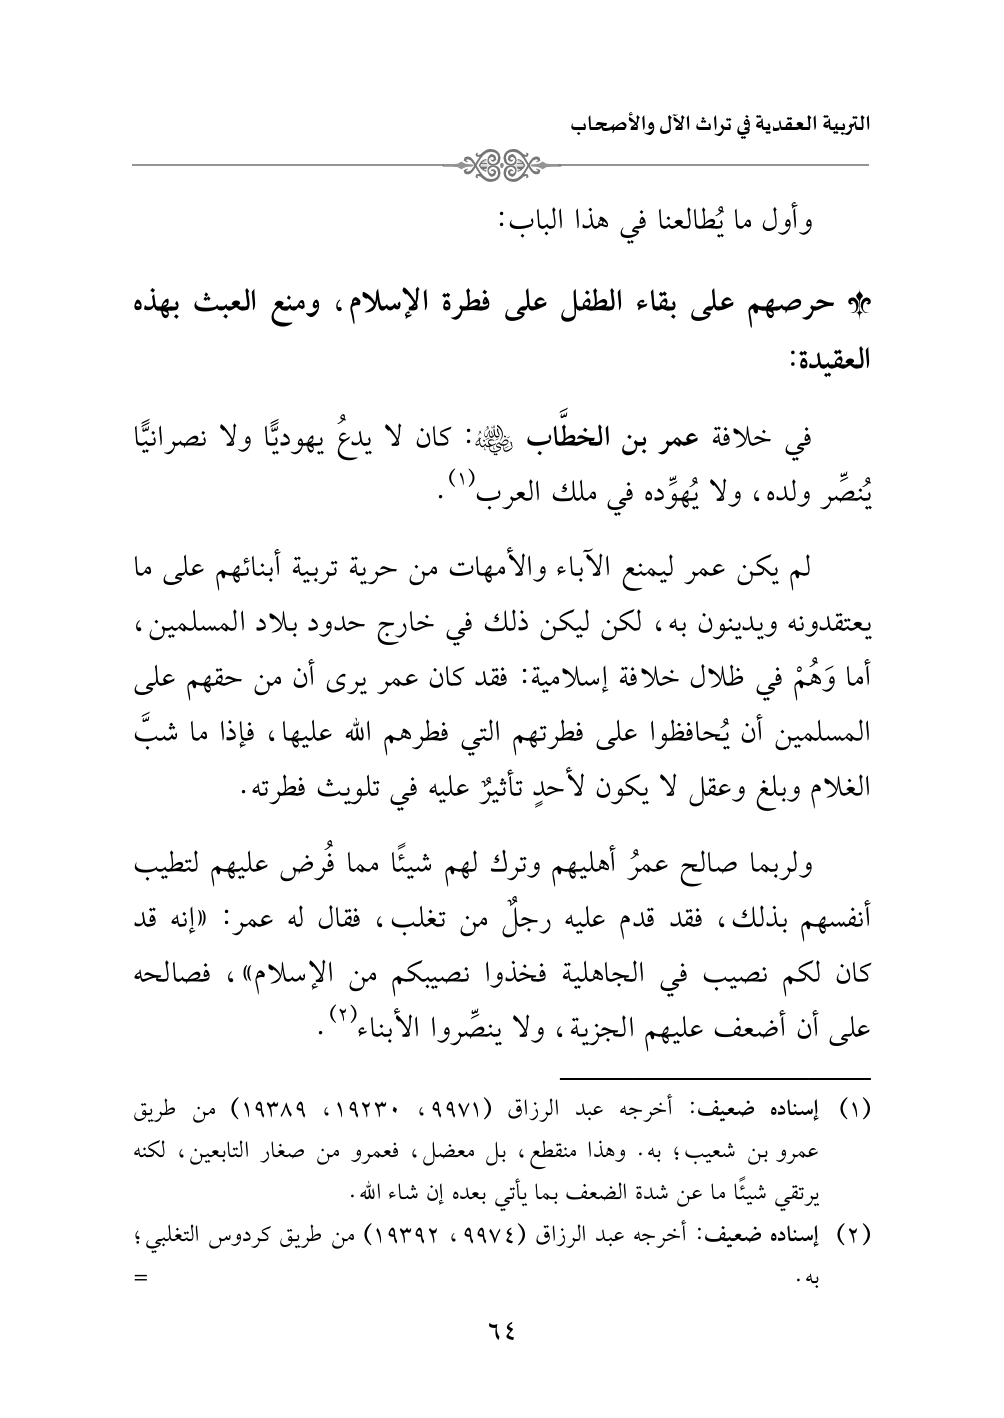 التربية العقدية في تراث الآل والأصحاب
وأول ما يُطالعنا في هذا الباب:
حرصهم على بقاء الطفل على فطرة الإسلام، ومنع العبث بهذه
العقيدة:
في خلافة عمر بن الخطَّاب رضي الله عنه: كان لا يدعُ يهوديًّا ولا نصرانيًّا
يُنصِّر ولده، ولا يُهوِّده في ملك العرب(١).
لم يكن عمر ليمنع الآباء والأمهات من حرية تربية أبنائهم على ما
يعتقدونه ويدينون به، لكن ليكن ذلك في خارج حدود بلاد المسلمين،
أما وَهُمْ في ظلال خلافة إسلامية: فقد كان عمر يرى أن من حقهم على
المسلمين أن يُحافظوا على فطرتهم التي فطرهم الله عليها، فإذا ما شبَّ
الغلام وبلغ وعقل لا يكون لأحدٍ تأثيرٌ عليه في تلويث فطرته.
ولربما صالح عمرُ أهليهم وترك لهم شيئًا مما فُرض عليهم لتطيب
أنفسهم بذلك، فقد قدم عليه رجلٌ من تغلب، فقال له عمر: «إنه قد
كان لكم نصيب في الجاهلية فخذوا نصيبكم من الإسلام»، فصالحه
على أن أضعف عليهم الجزية، ولا ينصِّروا الأبناء(٢).
(١) إسناده ضعيف: أخرجه عبد الرزاق (٩٩٧١، ١٩٢٣٠، ١٩٣٨٩) من طريق
عمرو بن شعيب؛ به. وهذا منقطع، بل معضل، فعمرو من صغار التابعين، لكنه
يرتقي شيئًا ما عن شدة الضعف بما يأتي بعده إن شاء الله.
(٢) إسناده ضعيف: أخرجه عبد الرزاق (٩٩٧٤، ١٩٣٩٢) من طريق كردوس التغلبي؛
به. =
٦٤